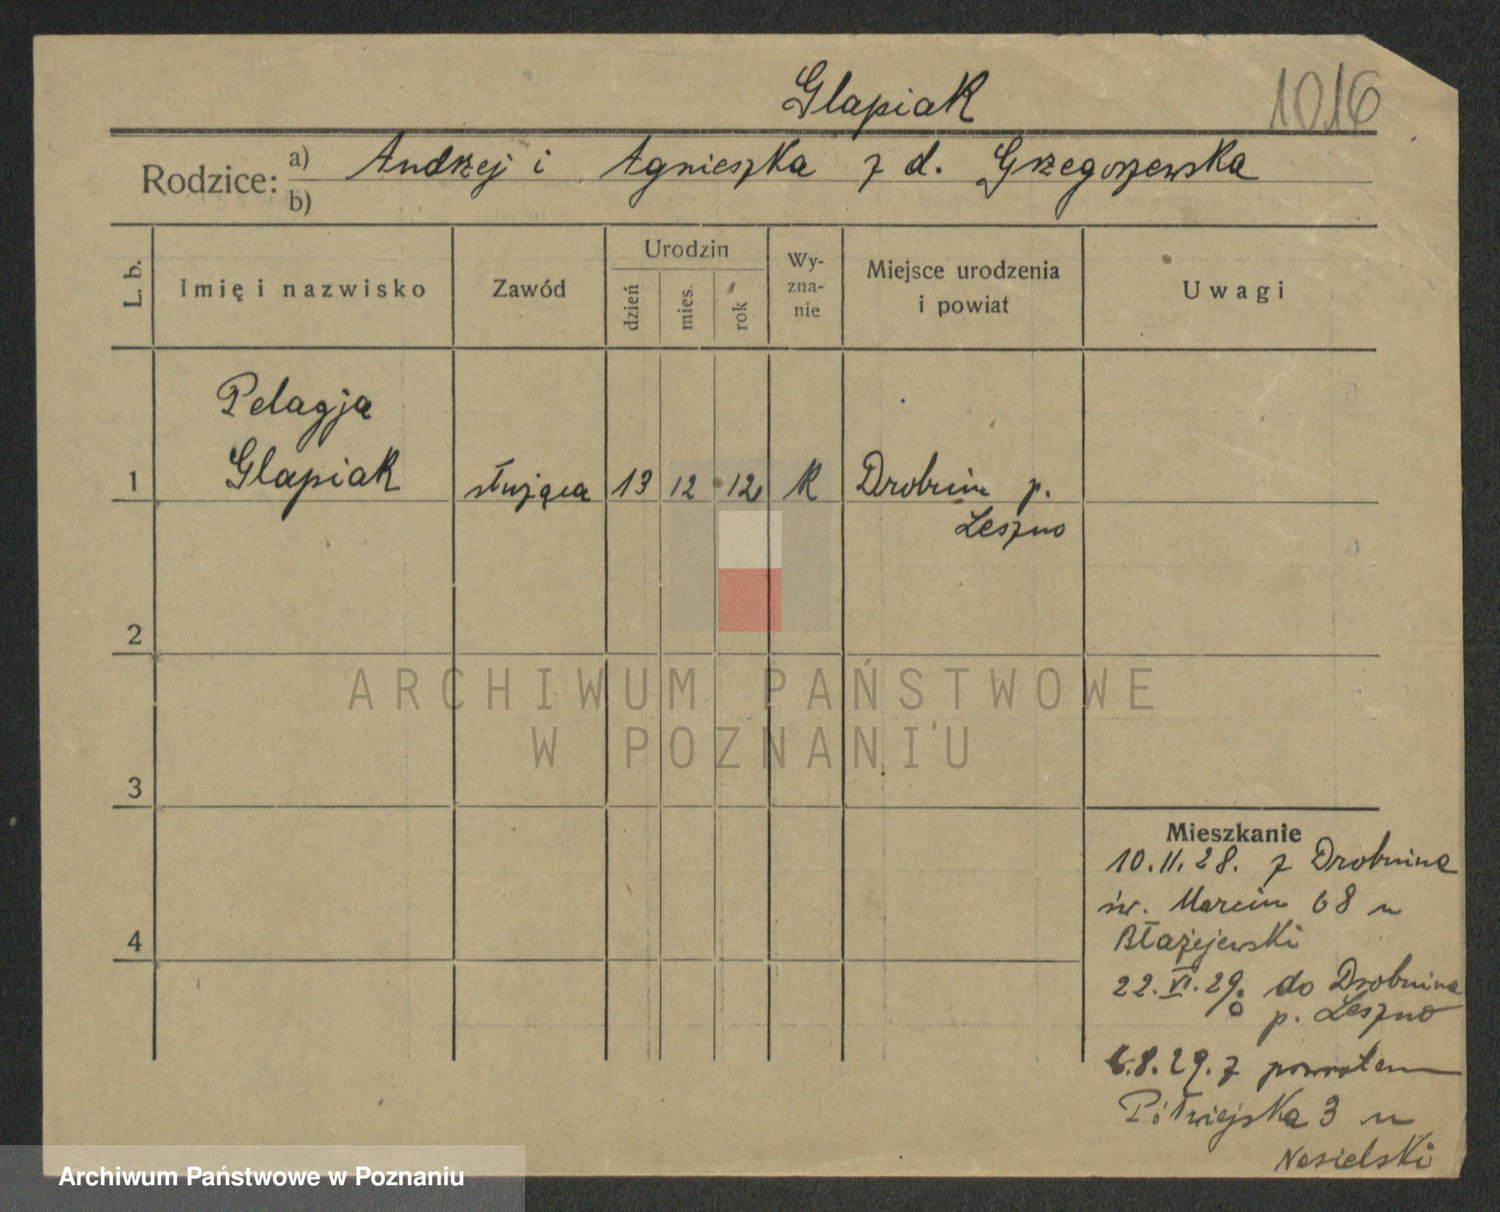 Glapiak
1016
Rodzice: a) Andrzej i Agnieszka z d. Grzegorzewska
b)
L. b.
Imię i nazwisko
Zawód
Urodzin
dzień
mies.
rok
Wy-
zna-
nie
Miejsce urodzenia
i powiat
Uwagi
Pelagja
1 Glapiak służąca 13 12 12 K Drobnin p.
Leszno
2
ARCHIWUM PAŃSTWOWE
W POZNANIU
3
Mieszkanie
10.11.28. z Drobnina
św. Marcin 68 u
Błażejewski
4
22.VI.29. do Drobnina
p. Leszno
6.8.29. z powrotem
Półwiejska 3 u
Nosielski
Archiwum Państwowe w Poznaniu